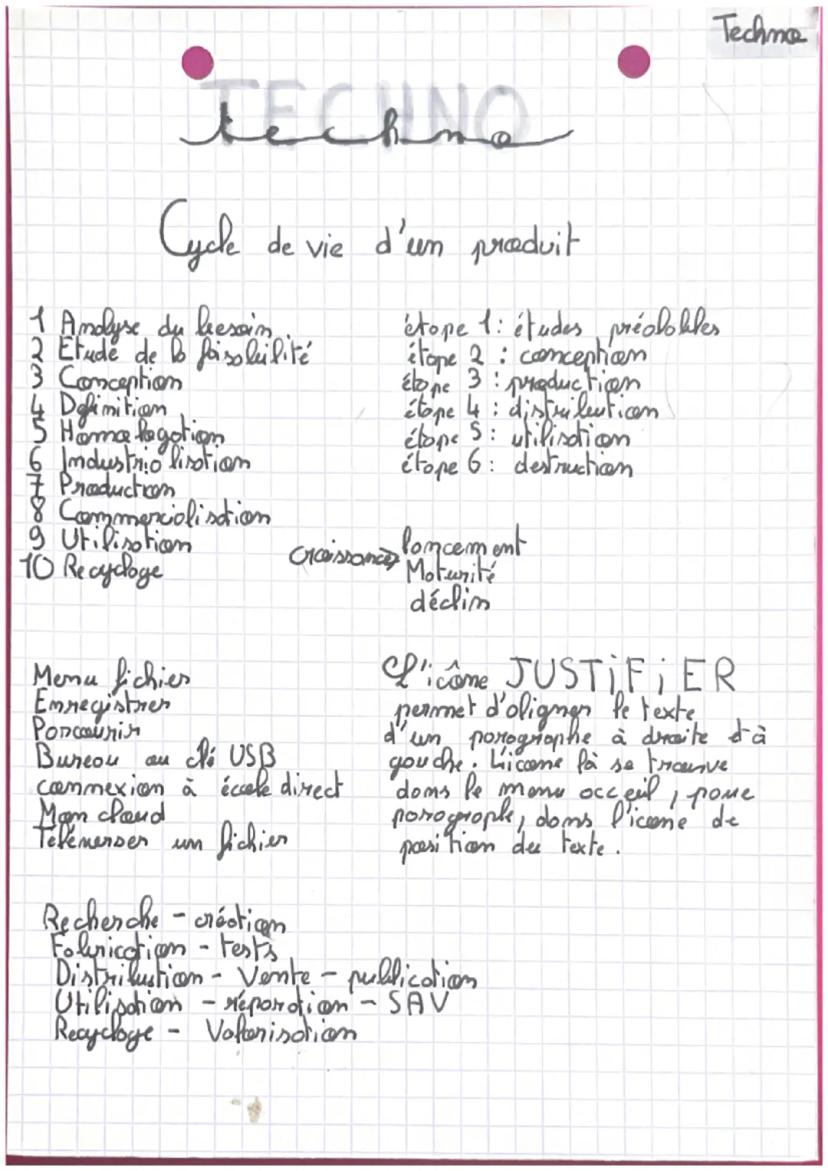 Techno
TECHNO
techno
Cycle de vie d'un produit
1 Analyse du besoin
2 Etude de la faisabilité
3 Conception
4 Définition
5 Homologation
6 Industrialisation
7 Production
8 Commercialisation
9 Utilisation
10 Recyclage
étape 1 : études préalables
étape 2 : conception
étape 3 : production
étape 4 : distribution
étape 5 : utilisation
étape 6 : destruction
croissance → lancement
Maturité
déclin
Menu fichier
Enregistrer
Parcourir
Bureau ou clé USB
connexion à école direct
Mon cloud
Téléverser un fichier
L'icône JUSTiFiER
permet d'aligner le texte
d'un paragraphe à droite et à
gauche. L'icone là se trouve
dans le menu acceuil, pour
paragraphe, dans l'icone de
position du texte.
Recherche - création
Fabrication - tests
Distribution - Vente - publication
Utilisation - réparation - SAV
Recyclage - Valorisation